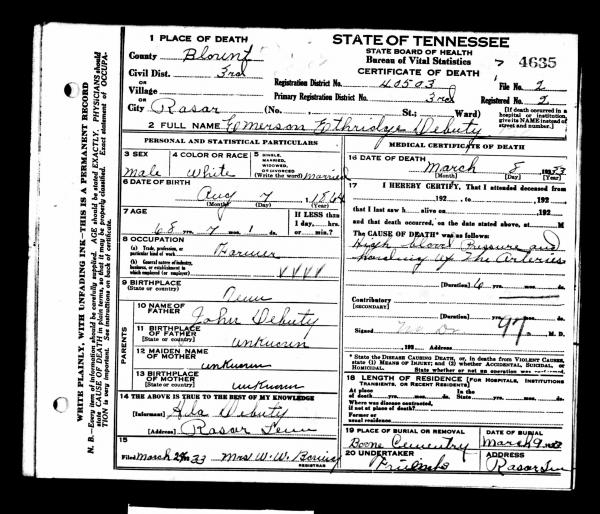 1 PLACE OF DEATH
County Blount
Civil Dist. 3rd
OR
Village
OR
City Rasar (No. St.; Ward)
STATE OF TENNESSEE
STATE BOARD OF HEALTH
Bureau of Vital Statistics
CERTIFICATE OF DEATH
4635
Registration District No. 40503 File No. 2
Primary Registration District No. 3rd Registered No. 2
[If death occurred in a
hospital or institution,
give its NAME instead of
street and number.]
2 FULL NAME Emerson Ethridge Debuty
PERSONAL AND STATISTICAL PARTICULARS
3 SEX
male
4 COLOR OR RACE
White
5 SINGLE,
MARRIED,
WIDOWED,
OR DIVORCED
(Write the word) Married
6 DATE OF BIRTH
Aug 7, 1864
(Month) (Day) (Year)
7 AGE
68 yrs. 7 mos. 1 ds.
If LESS than
1 day, hrs.
or min.?
8 OCCUPATION
(a) Trade, profession, or
particular kind of work Farmer
(b) General nature of industry,
business, or establishment in
which employed (or employer) VVVV
9 BIRTHPLACE
(State or country) Tenn
PARENTS
10 NAME OF
FATHER John Debuty
11 BIRTHPLACE
OF FATHER
(State or country) unknown
12 MAIDEN NAME
OF MOTHER unknown
13 BIRTHPLACE
OF MOTHER
(State or country) unknown
14 THE ABOVE IS TRUE TO THE BEST OF MY KNOWLEDGE
(Informant) Ada Debuty
(Address) Rasar Tenn
15
Filed March 33 Mrs W. W.
REGISTRAR
MEDICAL CERTIFICATE OF DEATH
16 DATE OF DEATH
March 8, 1933
(Month) (Day) (Year)
17 I HEREBY CERTIFY, That I attended deceased from
192 , to , 192
that I last saw h alive on , 192
and that death occurred, on the date stated above, at M
The CAUSE OF DEATH* was as follows:
High blood Pressure and
hardning up The Arteries
(Duration) 6 yrs. mos. ds.
Contributory
(SECONDARY)
(Duration) yrs. mos. ds.
Signed No Dr 97 M. D.
192 Address
* State the DISEASE CAUSING DEATH, or, in deaths from VIOLENT CAUSES,
state (1) MEANS OF INJURY; and (2) whether ACCIDENTAL, SUICIDAL, or
HOMICIDAL. State whether or not an operation was performed
18 LENGTH OF RESIDENCE (FOR HOSPITALS, INSTITUTIONS
TRANSIENTS, OR RECENT RESIDENTS)
At place
of death yrs. mos. ds. State yrs. mos. ds.
Where was disease contracted,
if not at place of death?
Former or
usual residence
19 PLACE OF BURIAL OR REMOVAL
Boone Cementry
DATE OF BURIAL
March 9 1933
20 UNDERTAKER
Friends
ADDRESS
Rasar Tenn
WRITE PLAINLY, WITH UNFADING INK—THIS IS A PERMANENT RECORD
N. B.—Every item of information should be carefully supplied. AGE should be stated EXACTLY. PHYSICIANS should
state CAUSE OF DEATH in plain terms, so that it may be properly classified. Exact statement of OCCUPA-
TION is very important. See instructions on back of certificate.